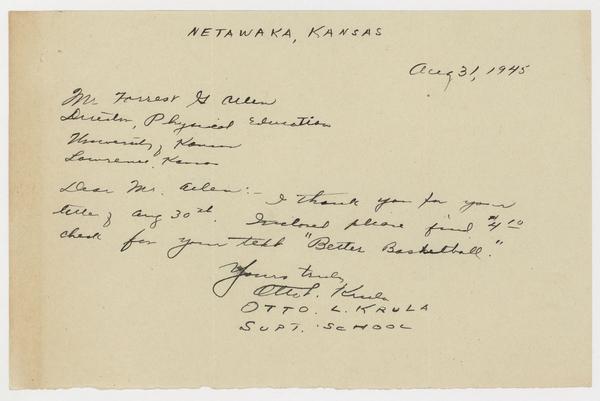 NETAWAKA, KANSAS
Aug 31, 1945
Mr Forrest G Allen
Director, Physical Education
University of Kansas
Lawrence, Kansas
Dear Mr. Allen:- I thank you for your
title of Aug 30th. Inclosed please find $4.10
check for your text "Better Basketball."
Yours truly
Otto L. Krula
OTTO. L. KRULA
SUPT. SCHOOL